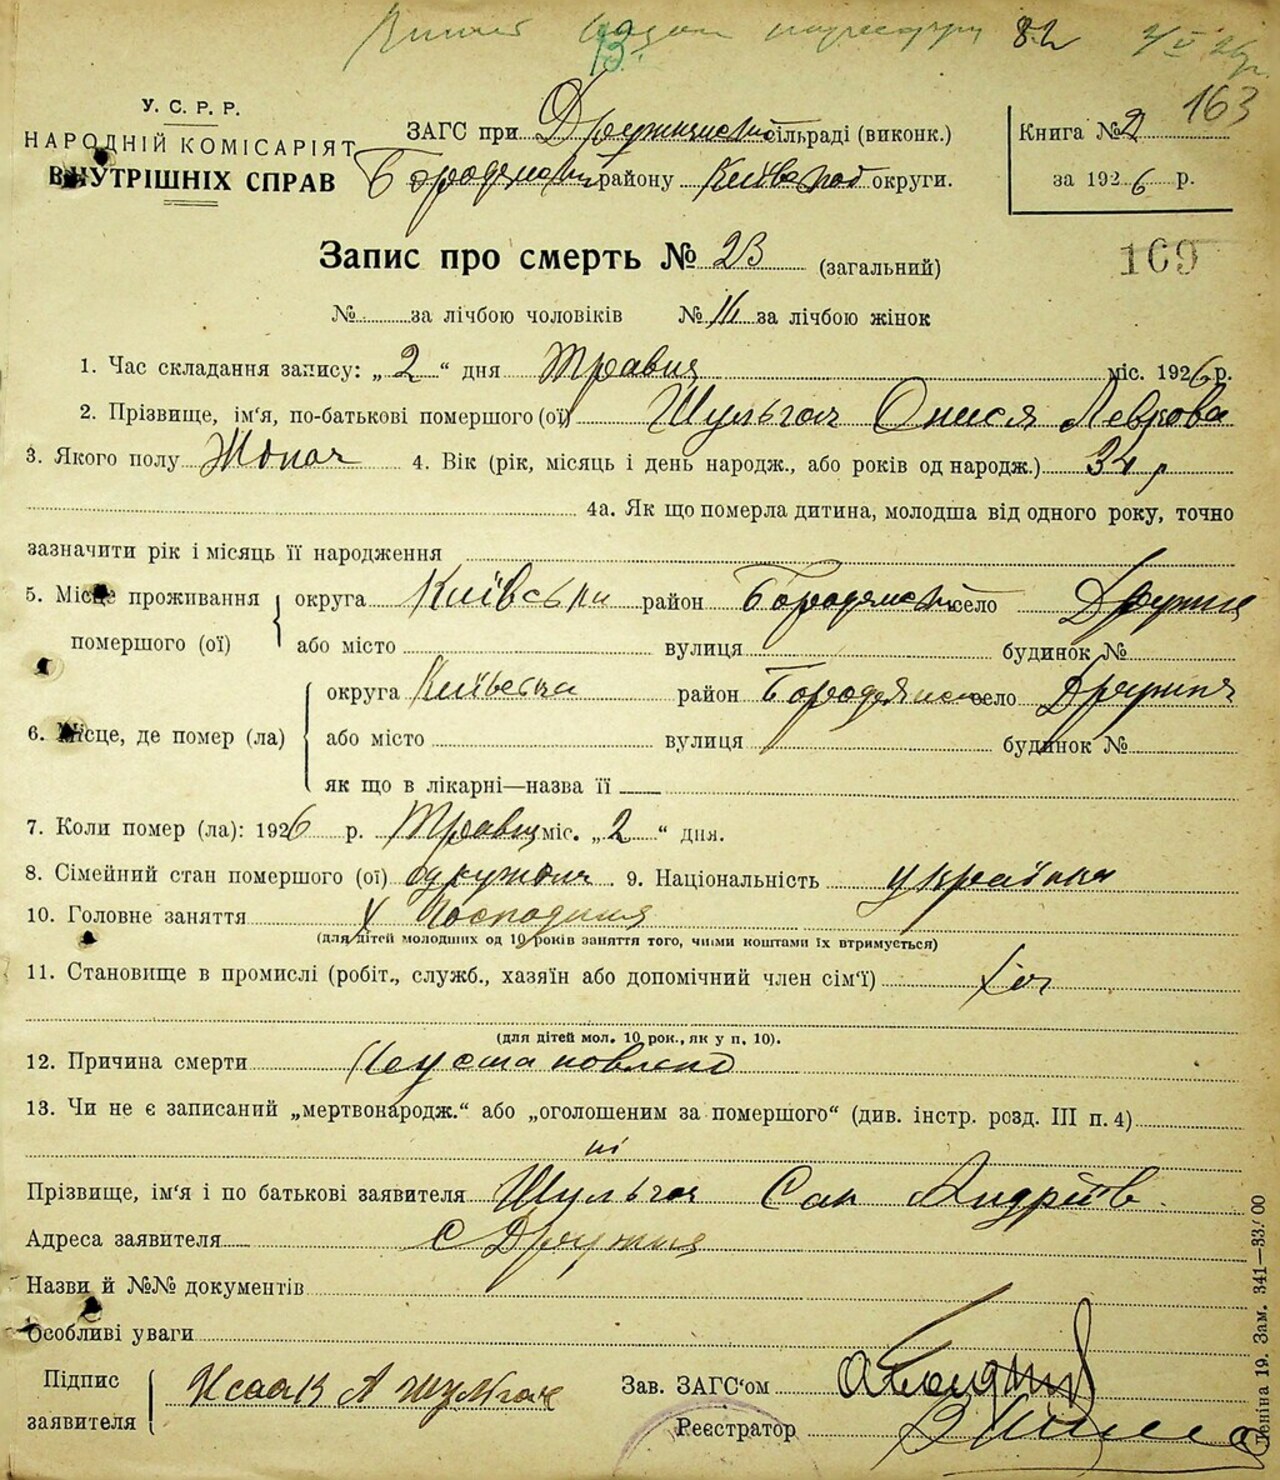 82
163
У. С. Р. Р.
НАРОДНІЙ КОМІСАРІЯТ
ВНУТРІШНІХ СПРАВ
ЗАГС при Дружнянськ сільраді (виконк.)
Бородянськ району Київськой округи.
Книга № 2
за 1926 р.
Запис про смерть № 23 (загальний)
169
№ за лічбою чоловіків № 16 за лічбою жінок
1. Час складання запису: „ 2 “ дня Травня міс. 1926 р.
2. Прізвище, ім'я, по-батькові помершого (ої) Шульгач Онися
3. Якого полу Жоноч 4. Вік (рік, місяць і день народж., або років од народж.) 34 р
4а. Як що померла дитина, молодша від одного року, точно
зазначити рік і місяць її народження
5. Місце проживання помершого (ої) округа Київська район Бородянськ село Дружня
або місто вулиця будинок №
6. Місце, де помер (ла) округа Київська район Бородянськ село Дружня
або місто вулиця будинок №
як що в лікарні—назва її
7. Коли помер (ла): 1926 р. Травня міс. „ 2 “ дня.
8. Сімейний стан помершого (ої) одружоня 9. Національність українка
10. Головне заняття Господиня
(для дітей молодших од 10 років заняття того, чиїми коштами їх втримується)
11. Становище в промислі (робіт., служб., хазяїн або допомічний член сім'ї)
(для дітей мол. 10 рок., як у п. 10).
12. Причина смерти Неустановлено
13. Чи не є записаний „мертвонародж.“ або „оголошеним за помершого“ (див. інстр. розд. III п. 4)
ні
Прізвище, ім'я і по батькові заявителя Шульгач Сак Андріїв
Адреса заявителя С Дружня
Назви й №№ документів
Особливі уваги
Підпис заявителя Исаак А Шульгач
Зав. ЗАГС'ом
Реєстратор
Леніна 19. Зам. 341—33.